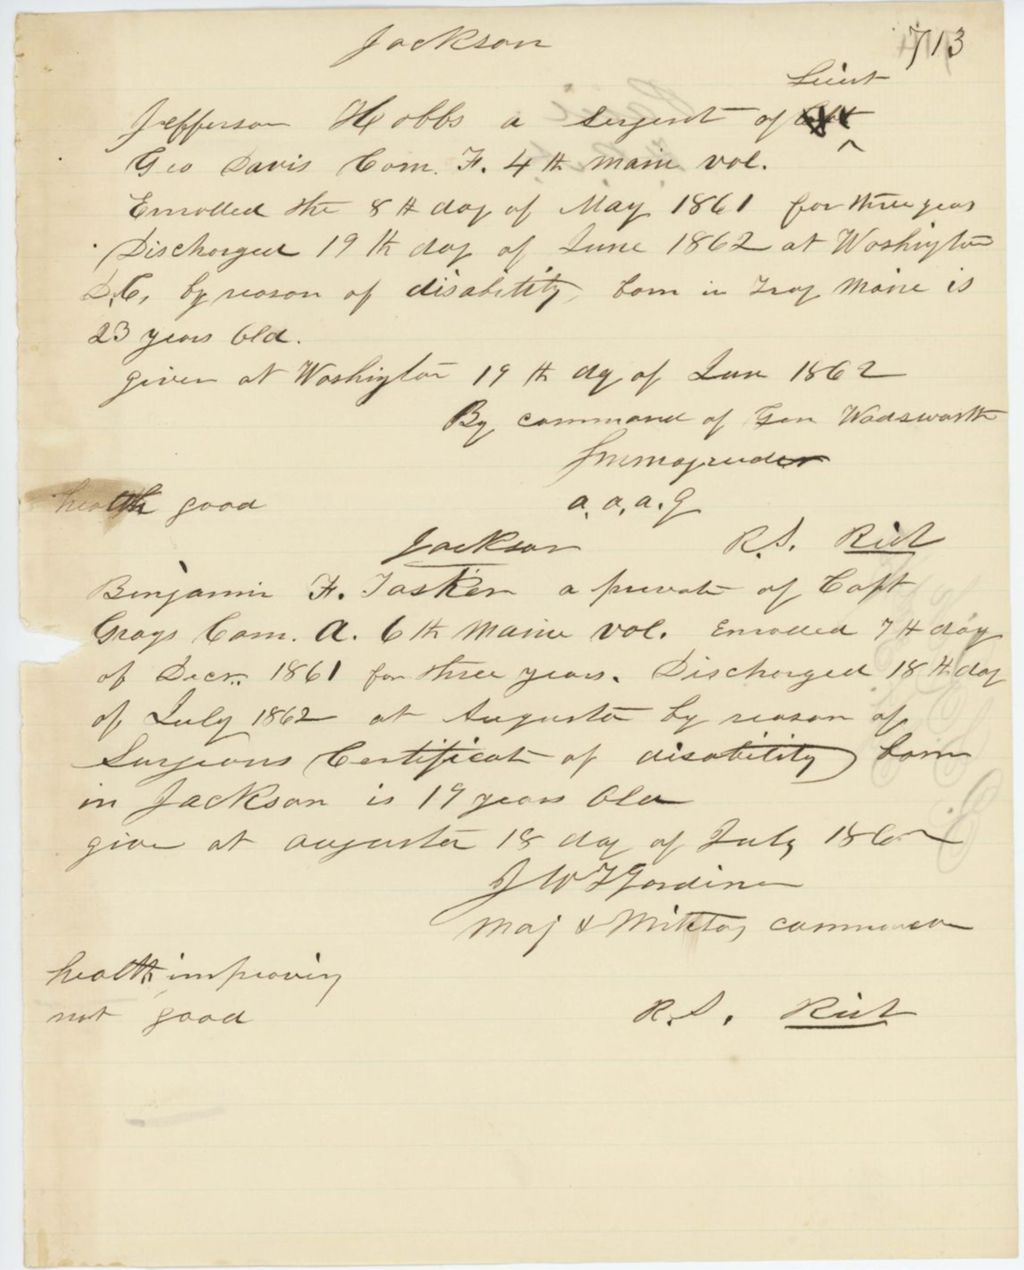 713
Jackson
Lieut
Jefferson Hobbs a sergent of
Geo Davis Com. F. 4th Maine vol.
Enrolled the 8th day of May 1861 for three years
Discharged 19th day of June 1862 at Washington
D.C, by reason of disability, born in Troy Maine is
23 years Old.
given at Washington 19th day of Jun 1862
By command of Gen Wadsworth
a. a, a. G
health good
Jackson R.S. Rich
Benjamin F. Tasker a private of Capt
Grays Com. A. 6th Maine vol. Enrolled 7th day
of Decr. 1861 for three years. Discharged 18th day
of July 1862 at Augusta by reason of
Surgeons Certificate of disability born
in Jackson is 19 years Old
give at augusta 18 day of July 1862
J W T Gardiner
Maj & Military
health improving
not good
R.S. Rich